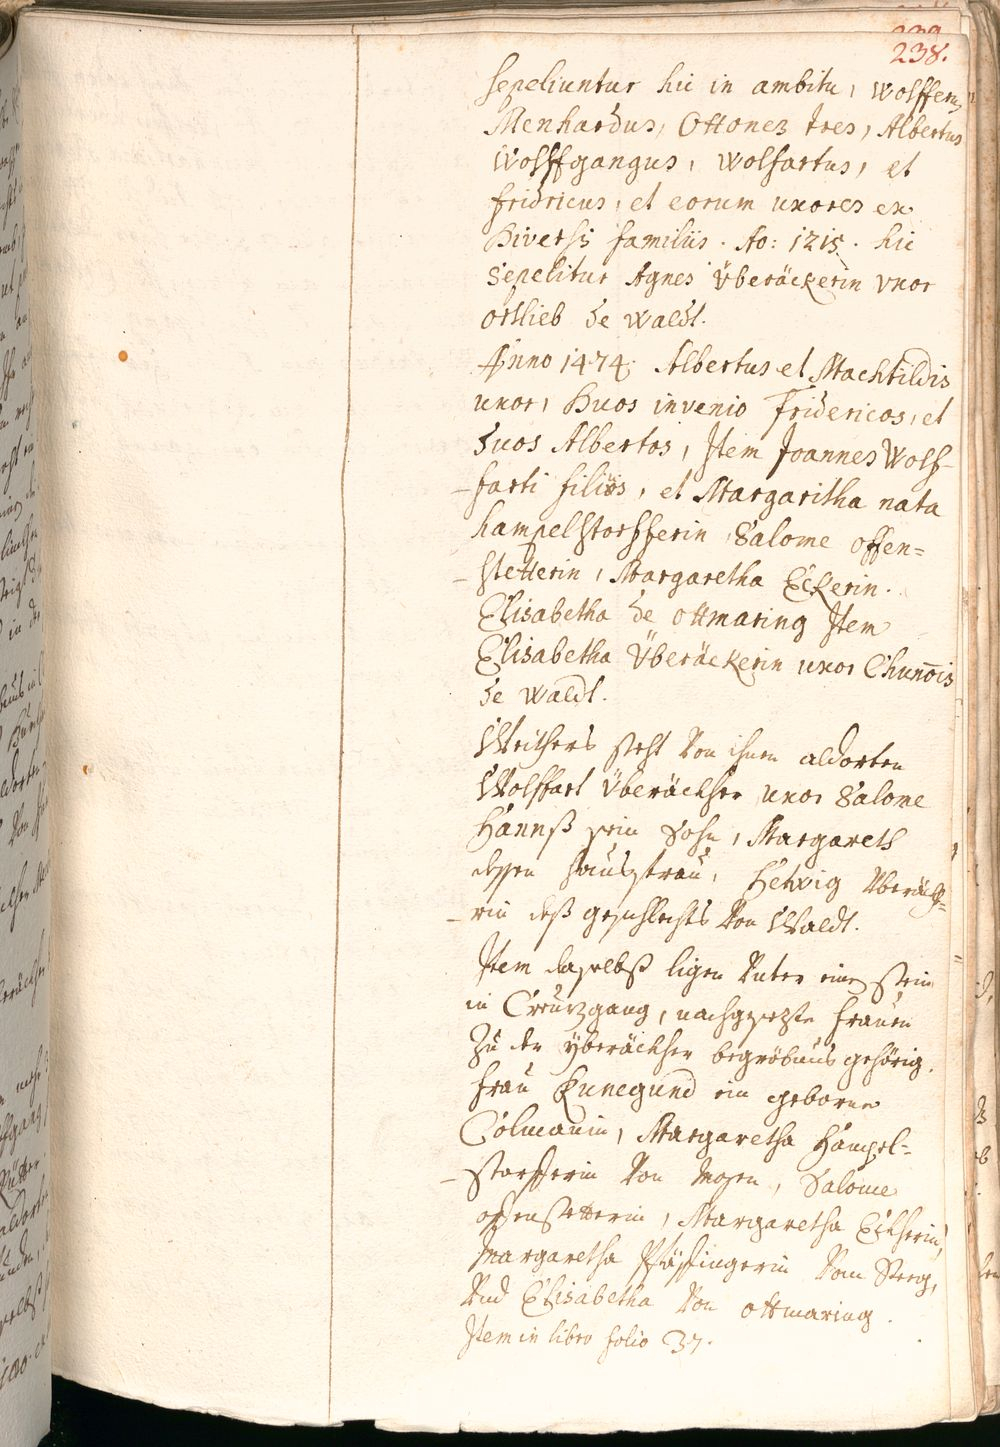 238.
sepeliuntur hic in ambitu, Wolfferus
Menhardus, Ottones tres, Albertus
Wolffgangus, Wolfartus, et
fridricus, et eorum uxores ex
Diversis familiis. Ao: 1215. hic
Sepelitur Agnes Überäckerin vxor
ortlieb de Waldt.
Anno 1474. Albertus et Machtildis
uxor, Duos invenio Fridericos, et
duos Albertos, Item Joannes Wolf-
farti filiüs, et Margaritha nata
hampelstorfferin, Salome offen=
stetterin, Margaretha Eckerin.
Elisabetha de ottmaring Item
Elisabetha Überäckerin uxor Chunois
de Waldt.
Weithers steht Von ihnen aldorten
Wolffart Überäckher uxor Salome
Hannß sein Sohn, Margareth
dessen haussfrau, Hetwig Überäckh=
rin deß geschlechts Von Waldt.
Item daselbst ligen Unter einem stein
in Creützgang, nachgesezte frauen
Zu der yberäckher begröbnus gehörig.
frau Kunegund ein geborne
Colmanin, Margaretha Hampel=
storfferin Von Mosen, Salome
offenstetterin, Margaretha Eckherin,
Margaretha Pfäffingerin Vom Steeg,
Und Elisabetha Von ottmaring.
Item in libro folio 37.